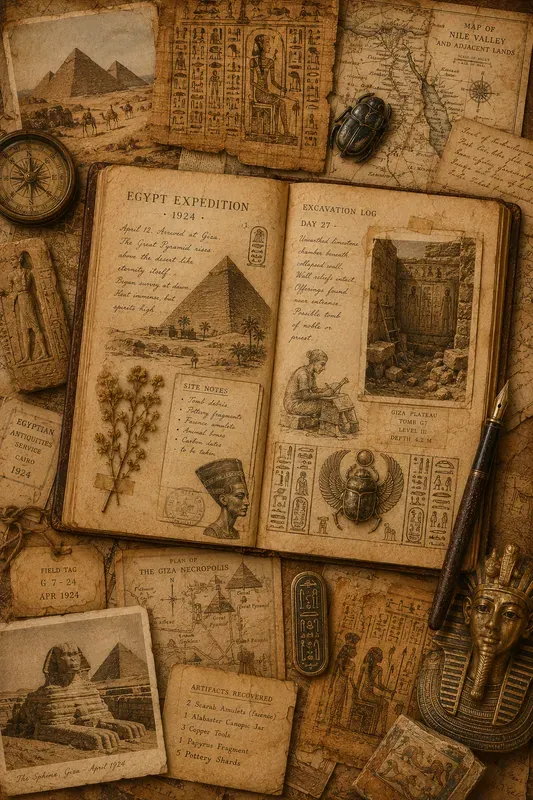 MAP OF
NILE VALLEY
AND ADJACENT LANDS
EGYPT EXPEDITION
· 1924 ·
April 12. Arrived at Giza.
The Great Pyramid rises
above the desert like
eternity itself.
Began survey at dawn
Heat immense, but
spirits high.
SITE NOTES
• Tomb debris
• Pottery fragments
• Faience amulets
• Animal bones
• Carbon dates
to be taken
EXCAVATION LOG
DAY 27
Unearthed limestone
chamber beneath
collapsed wall.
Wall reliefs intact.
Offerings found
near entrance.
Possible tomb
of noble or
priest.
GIZA PLATEAU
TOMB G7
LEVEL III
DEPTH 4.2 M
EGYPTIAN
ANTIQUITIES
SERVICE
CAIRO
1924
FIELD TAG
G 7 - 24
APR 1924
PLAN OF
THE GIZA NECROPOLIS
N
Great Pyramid
The Sphinx, Giza - April 1924
ARTIFACTS RECOVERED
2 Scarab Amulets (faience)
1 Alabaster Canopic Jar
3 Copper Tools
1 Papyrus Fragment
5 Pottery Shards